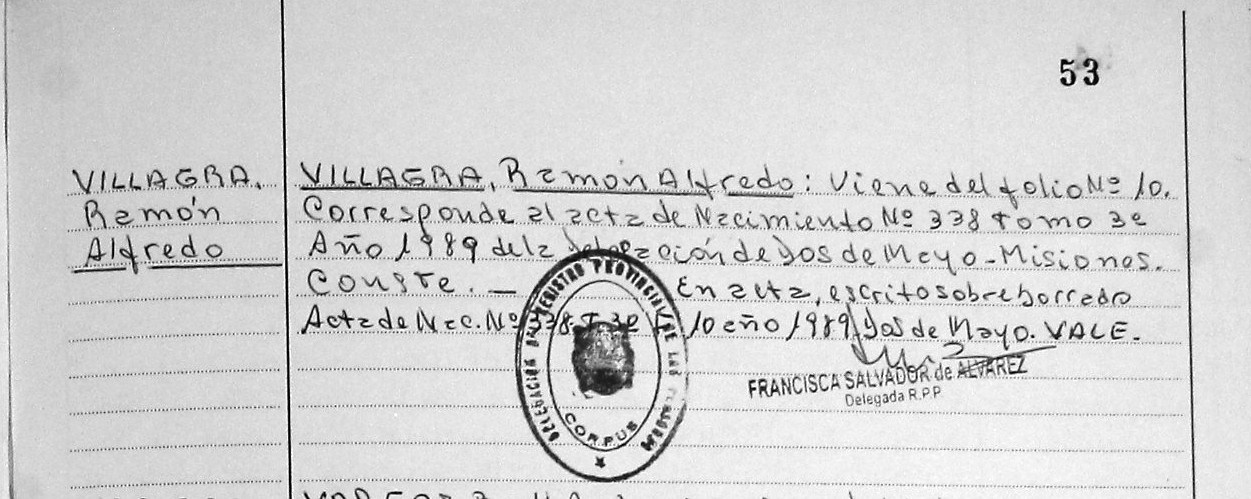 53
VILLAGRA,
Ramón
Alfredo
VILLAGRA, Ramón Alfredo: Viene del folio Nº 10.
Corresponde al acta de Nacimiento Nº 338 tomo 3º
Año 1989 de la Delegación de Dos de Mayo - Misiones.
Conste. — En acta, escrito sobre borrado
Acta de Nac. Nº 338. T 3º F 10 año 1989 Dos de Mayo. VALE.
FRANCISCA SALVADOR de ALVAREZ
Delegada R.P.P
DELEGACION DEL REGISTRO PROVINCIAL DE LAS PERSONAS
CORPUS